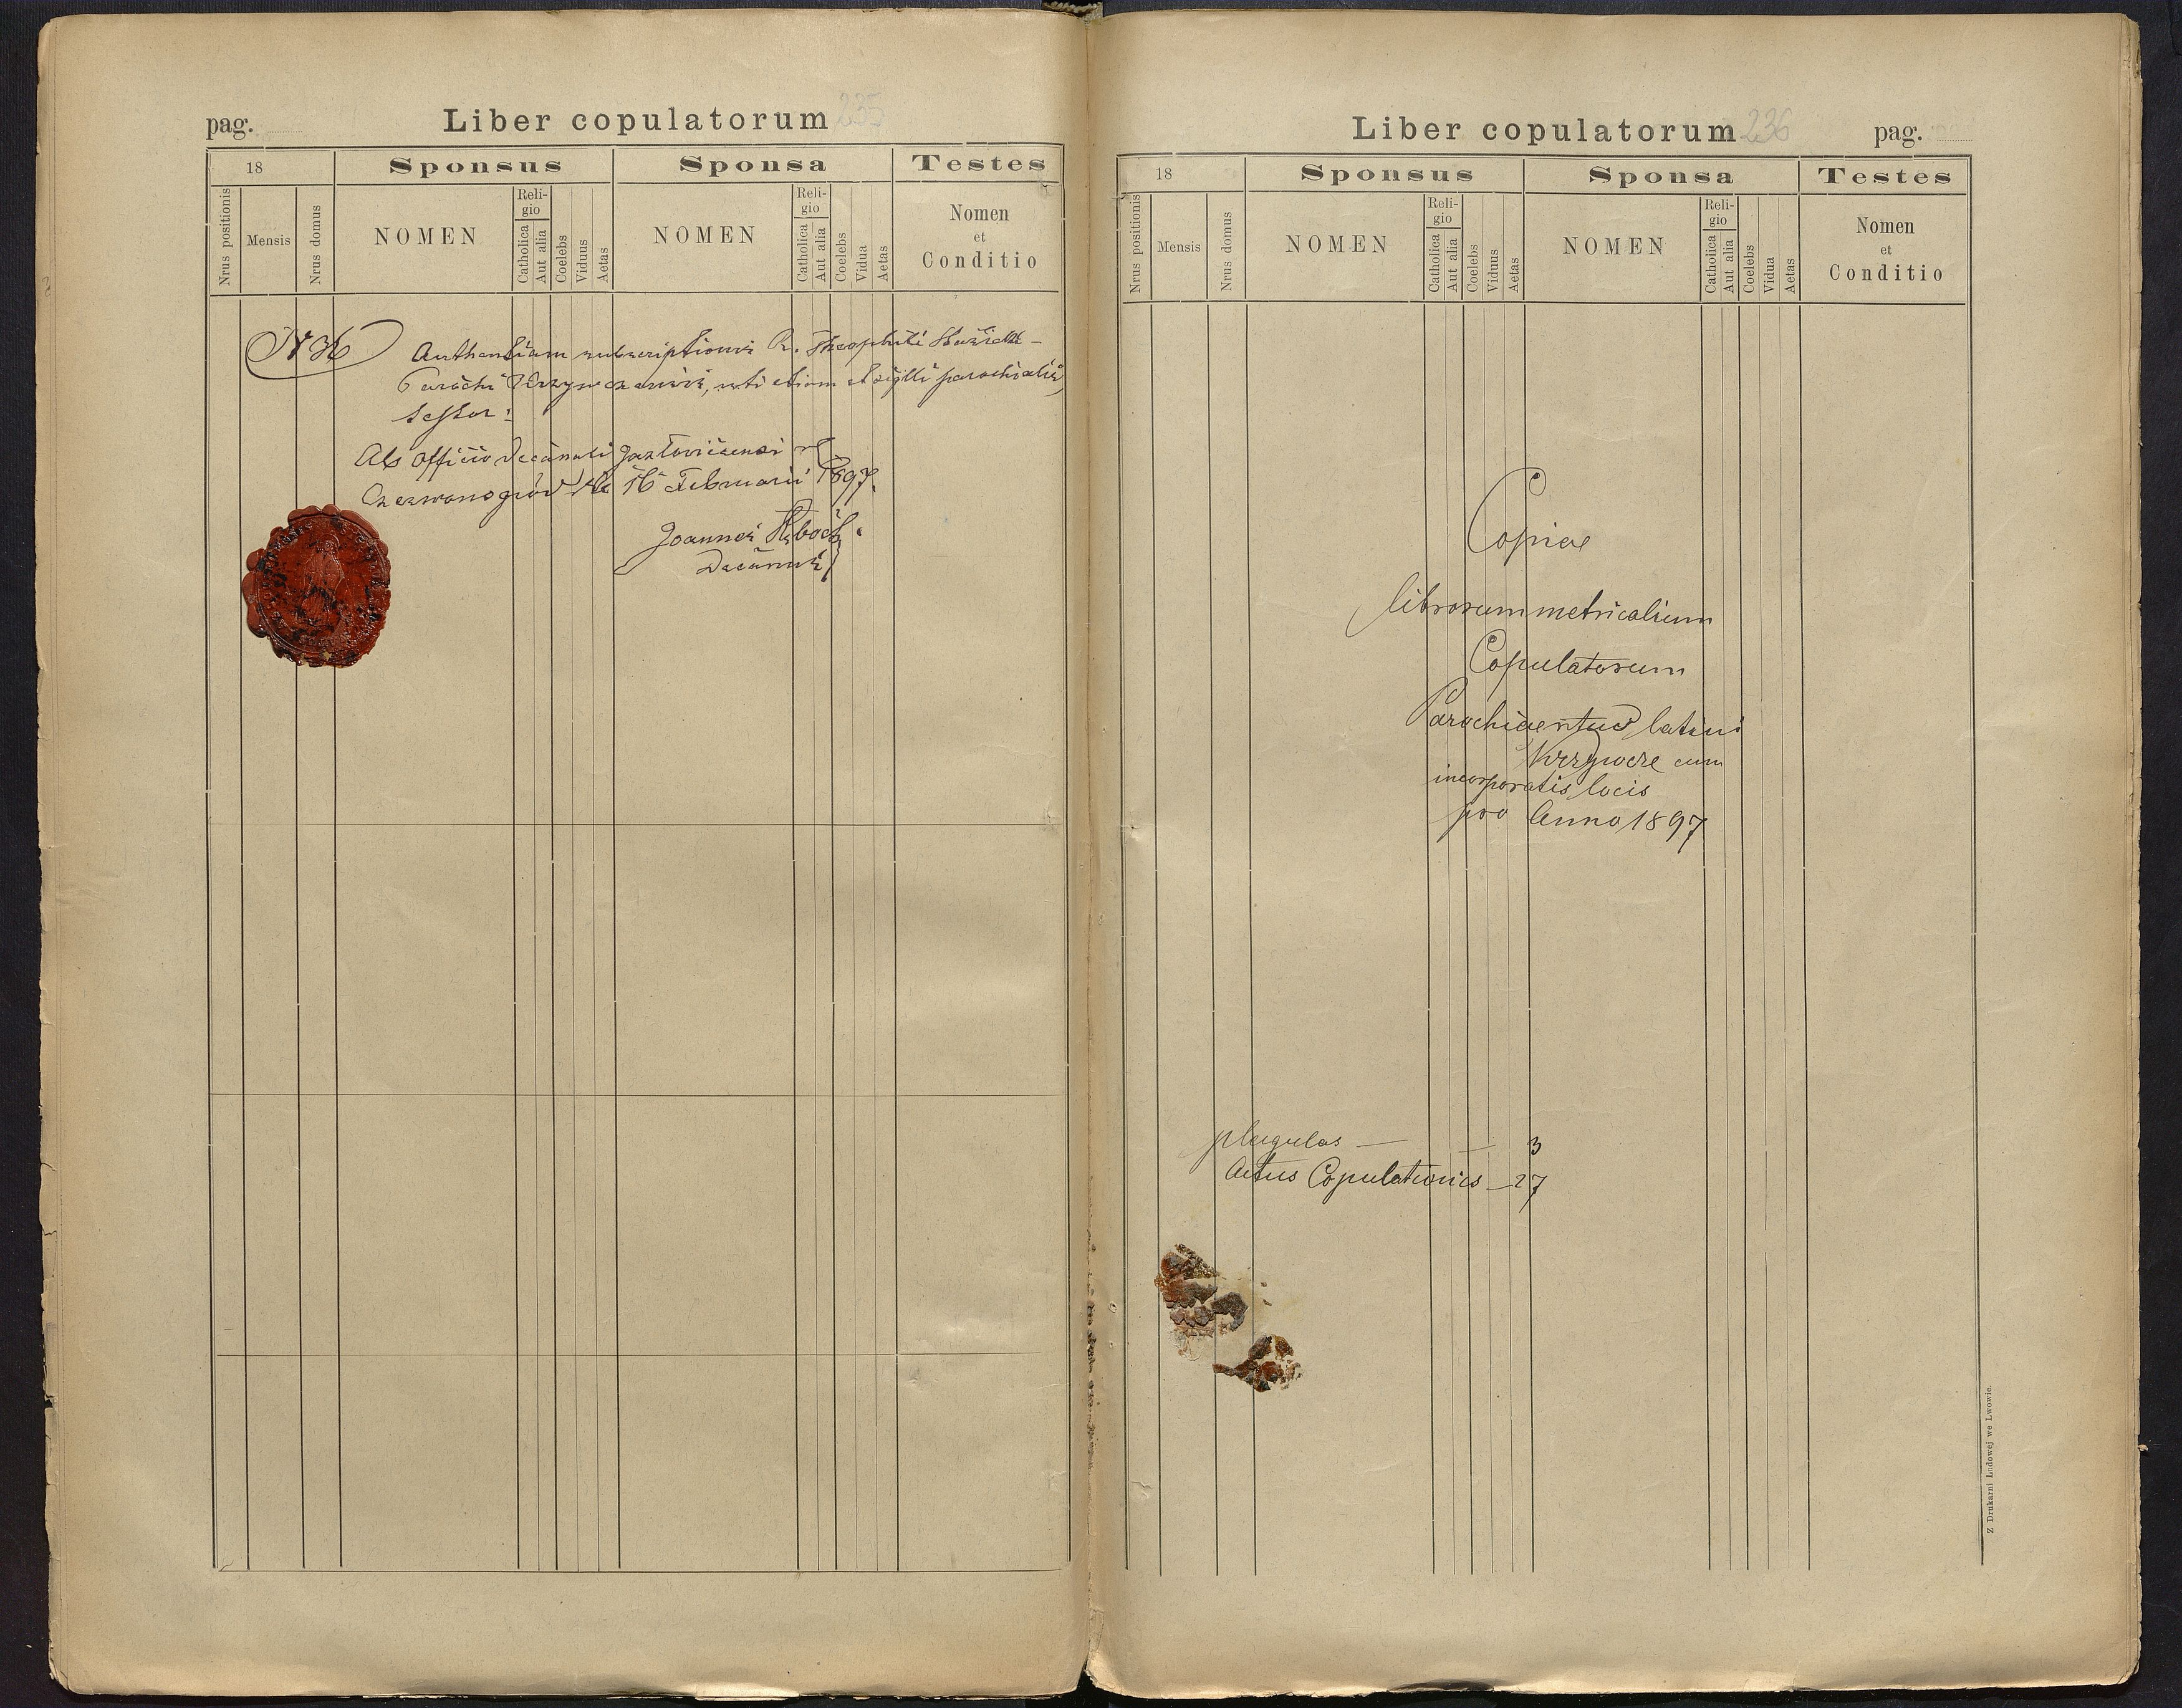 pag.
Liber copulatorum 235
18
Sponsus
Sponsa
Testes
Nrus positionis
Mensis
Nrus domus
NOMEN
Reli-
gio
Catholica
Aut alia
Coelebs
Viduus
Aetas
NOMEN
Reli-
gio
Catholica
Aut alia
Coelebs
Vidua
Aetas
Nomen
et
Conditio
Authentiam subscriptionis R. Theophili
Parochi Krzywczensis, uti etiam et sigilli parochialis,
testor:
Ab officio Decanali Jazloviciensi r. l.
Czerwonogród die 16 Februarii 1897.
Joannes
Decanus
Liber copulatorum 236
pag.
18
Sponsus
Sponsa
Testes
Nrus positionis
Mensis
Nrus domus
NOMEN
Reli-
gio
Catholica
Aut alia
Coelebs
Viduus
Aetas
NOMEN
Reli-
gio
Catholica
Aut alia
Coelebs
Vidua
Aetas
Nomen
et
Conditio
Copiae
librorum metricalium
Copulatorum
Parochiae latini
Krzywcze cum
incorporatis locis
pro Anno 1897
plagulas — — 3
Actus Copulationis — 27
Z Drukarni Ludowej we Lwowie.